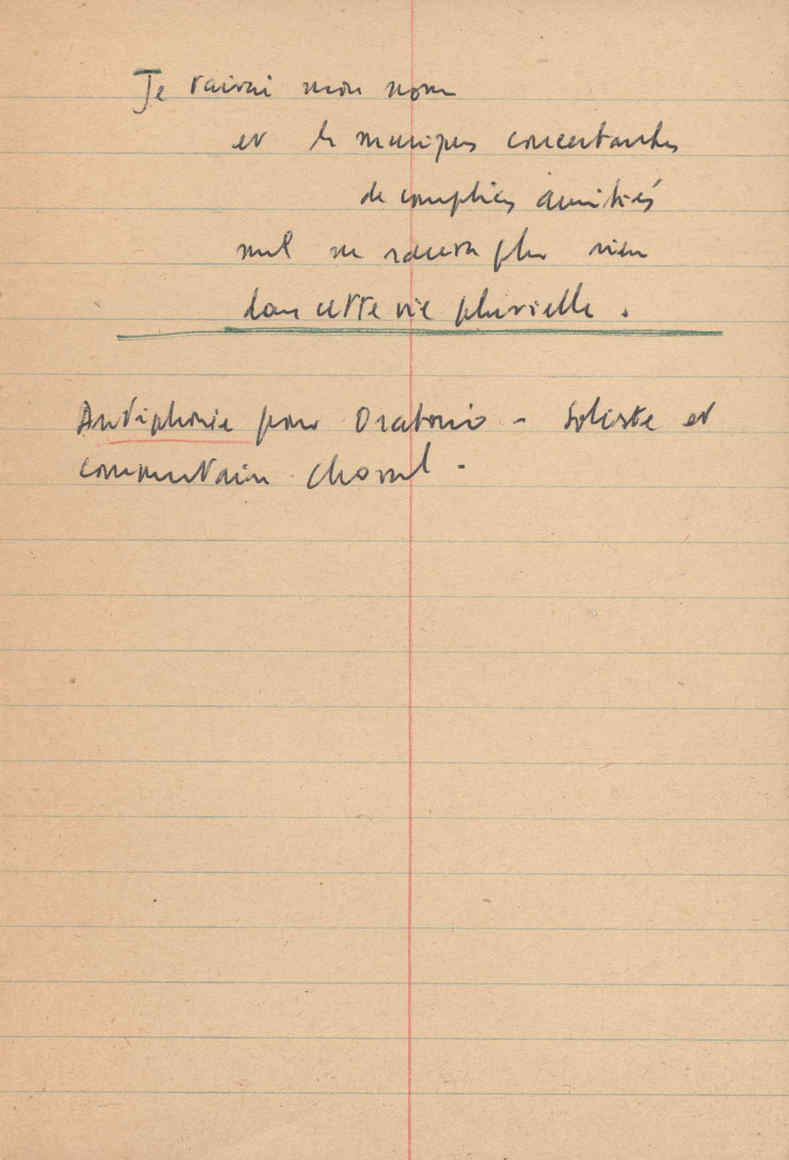 Je saurai mon nom
et les musiques concertantes
de complices amitiés
nul ne saura plus rien
dans cette vie plurielle.
Antiphonie pour Oratorio - Soliste et
commentaire choral -